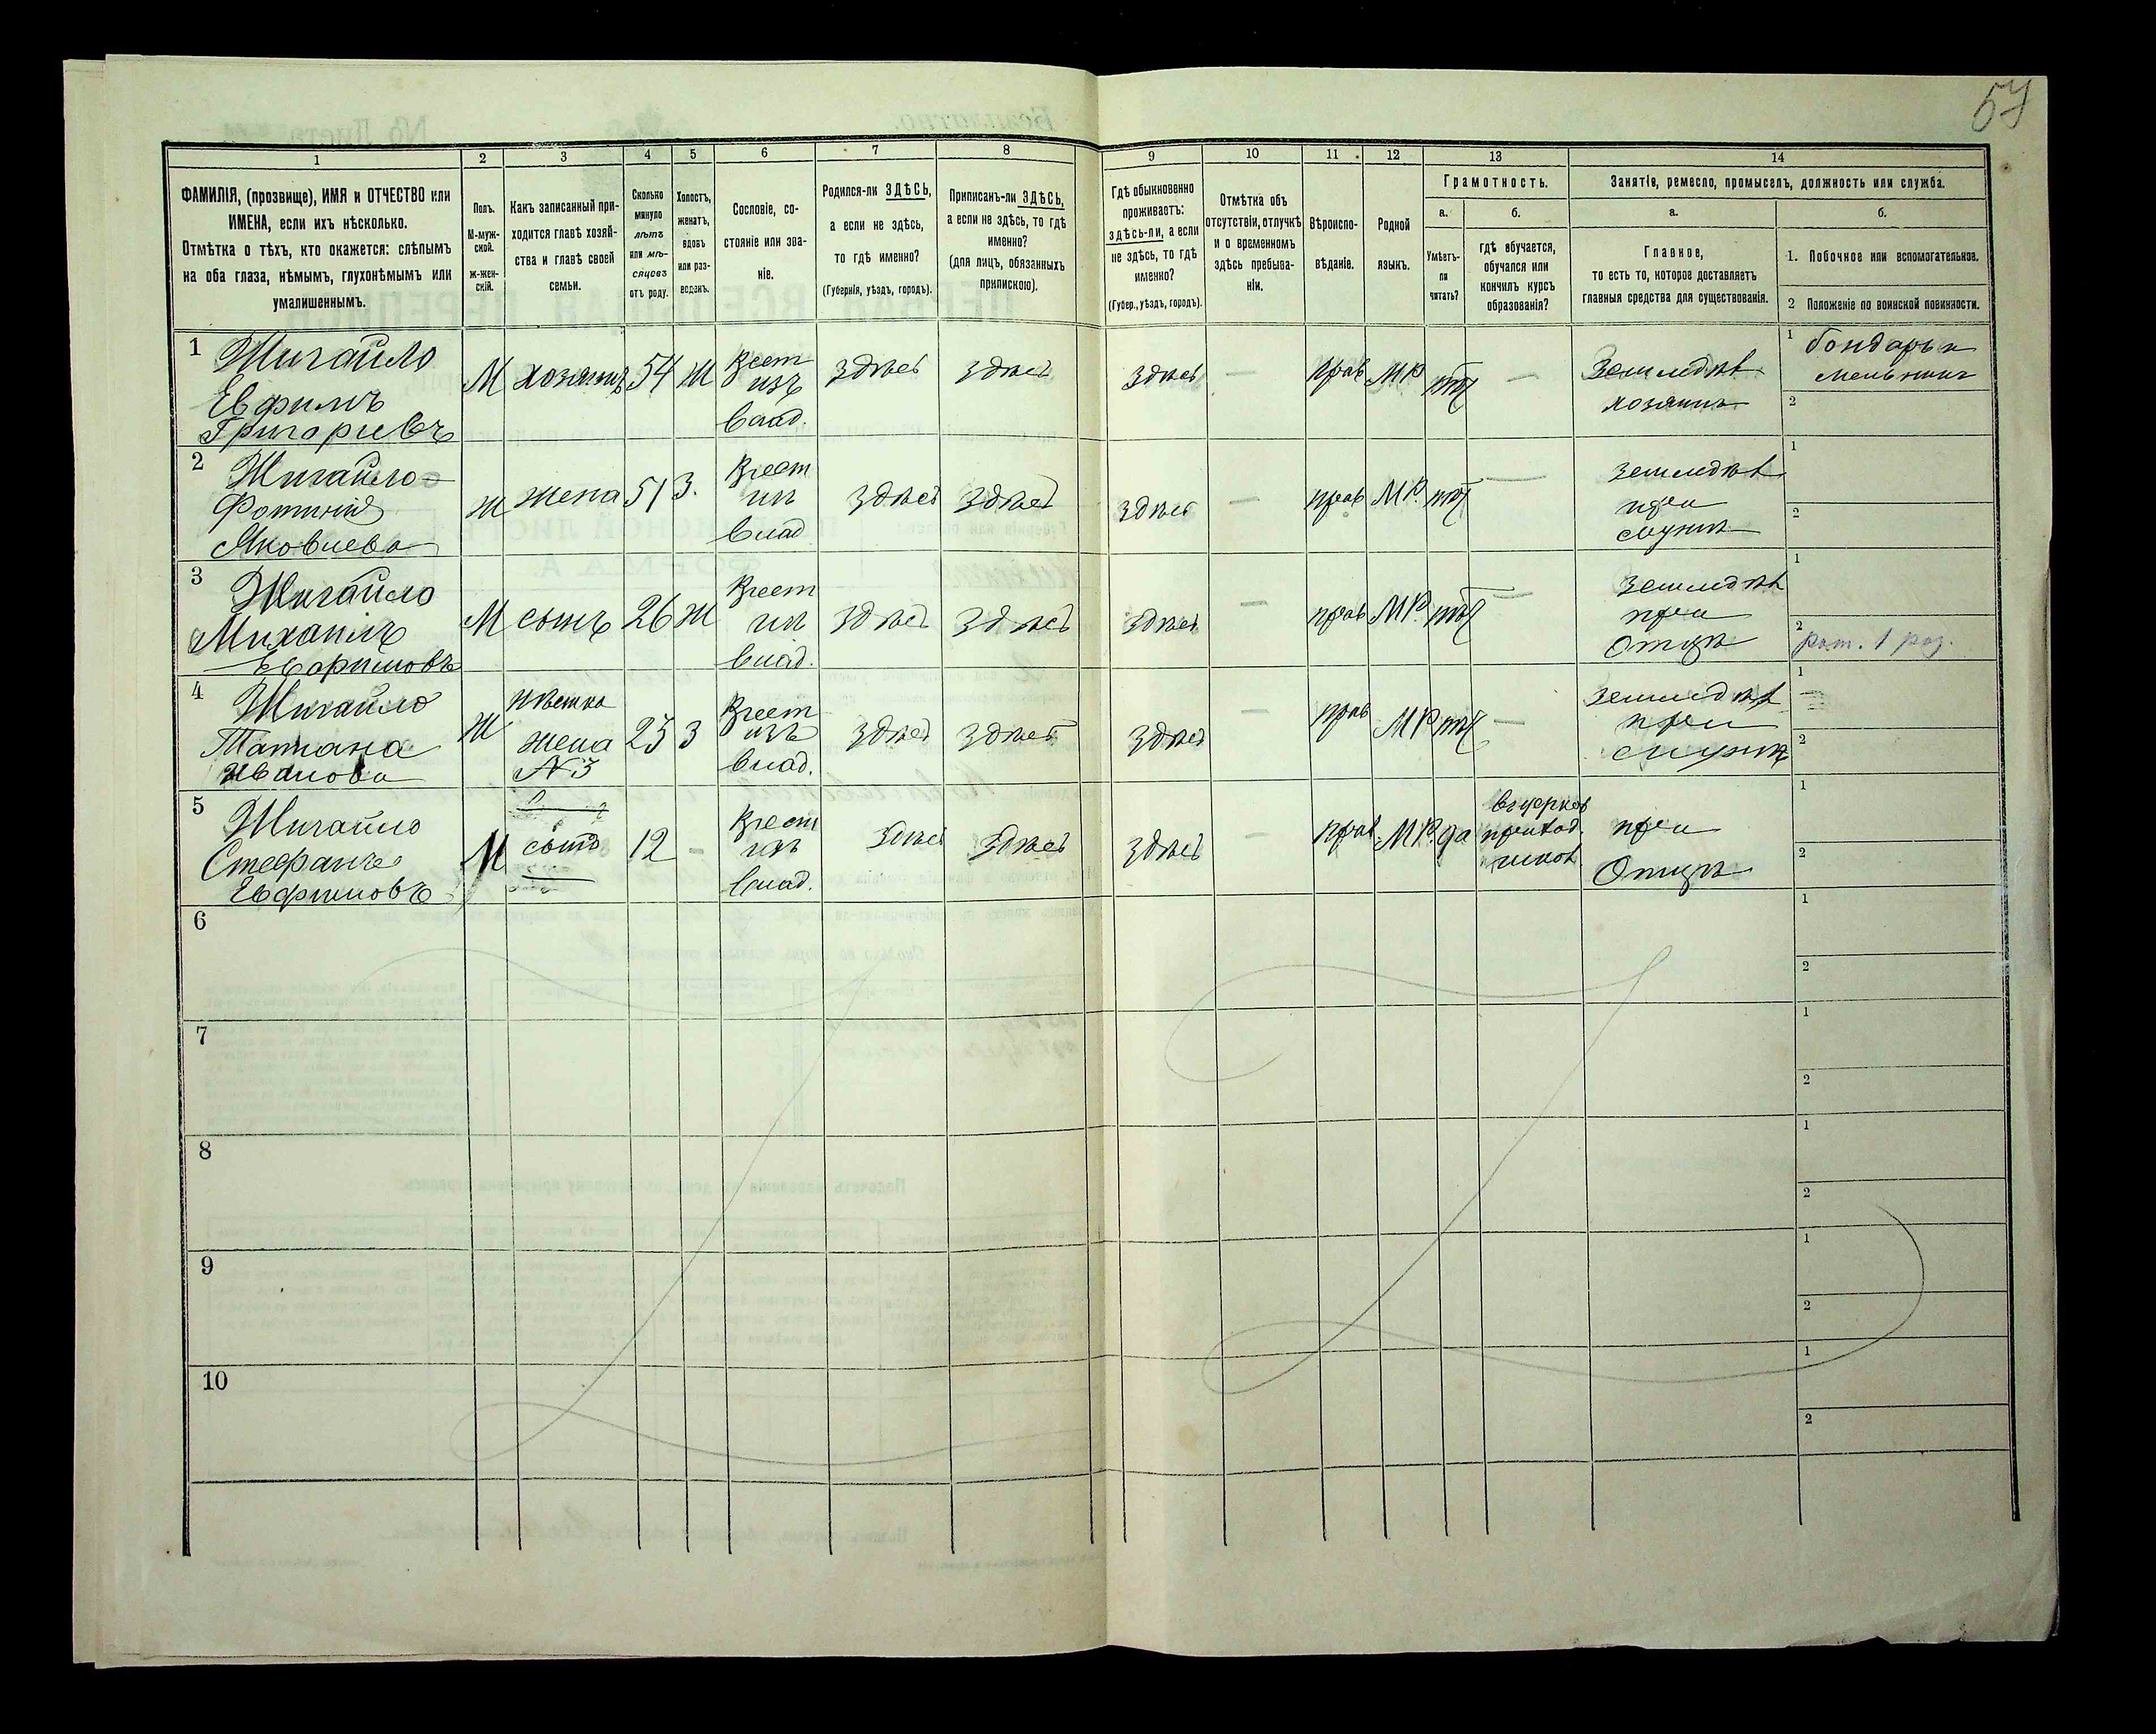 57
1
2
3
4
5
6
7
8
9
10
11
12
13
14
ФАМИЛІЯ, (прозвище), ИМЯ и ОТЧЕСТВО или
ИМЕНА, если ихъ нѣсколько.
Отмѣтка о тѣхъ, кто окажется: слѣпымъ
на оба глаза, нѣмымъ, глухонѣмымъ или
умалишеннымъ.
Полъ.
М-муж-
ской.
ж-жен-
скій.
Какъ записанный при-
ходится главѣ хозяй-
ства и главѣ своей
семьи.
Сколько
минуло
лѣтъ
или мѣ-
сяцевъ
отъ роду.
Холостъ,
женатъ,
вдовъ
или раз-
веденъ.
Сословіе, со-
стояніе или зва-
ніе.
Родился-ли ЗДѢСЬ,
а если не здѣсь,
то гдѣ именно?
(Губернія, уѣздъ, городъ).
Приписанъ-ли ЗДѢСЬ,
а если не здѣсь, то гдѣ
именно?
(для лицъ, обязанныхъ
припискою).
Гдѣ обыкновенно
проживаетъ:
здѣсь-ли, а если
не здѣсь, то гдѣ
именно?
(Губер., уѣздъ, городъ).
Отмѣтка объ
отсутствіи, отлучкѣ
и о временномъ
здѣсь пребыва-
ніи.
Вѣроиспо-
вѣданіе.
Родной
языкъ.
Грамотность.
а.
б.
Умѣетъ-
ли
читать?
гдѣ обучается,
обучался или
кончилъ курсъ
образованія?
Занятіе, ремесло, промыселъ, должность или служба.
а.
б.
Главное,
то есть то, которое доставляетъ
главныя средства для существованія.
1. Побочное или вспомогательное.
2 Положеніе по воинской повинности.
1 Жигайло
Евфимъ
Григорьевъ
М
хозяинъ
54
Ж
Крест
изъ
влад.
здѣсь
здѣсь
здѣсь
—
прав
МР
нѣт
—
Земледѣл
хозяинъ
1 бондарь и
мельникъ
2
2 Жигайло
Фотинія
Яковлева
Ж
жена
51
З.
Крест
из
влад
здѣсь
здѣсь
здѣсь
—
прав
МР.
нѣт
—
земледѣл
при
мужѣ
1
2
3 Жигайло
Михаилъ
Евфимовъ
М
сынъ
26
Ж
Крест
из
влад.
здѣсь
здѣсь
здѣсь
—
прав
МР.
нѣт
—
земледѣл
при
Отцѣ
1
2 рат. 1 раз.
4 Жигайло
Татиана
Иванова
Ж
невѣстка
жена
N 3
23
З
Крест
изъ
влад.
здѣсь
здѣсь
здѣсь
—
прав
МР
нѣт
—
земледѣл
при
мужѣ
1
2
5 Жигайло
Стефанъ
Евфимовъ
М
сынъ
12
-
Крест
изъ
влад.
здѣсь
здѣсь
здѣсь
—
прав
МР.
да
въ церков
приход.
школ.
при
Отцѣ
1
2
6
1
2
7
1
2
8
1
2
9
1
2
10
1
2